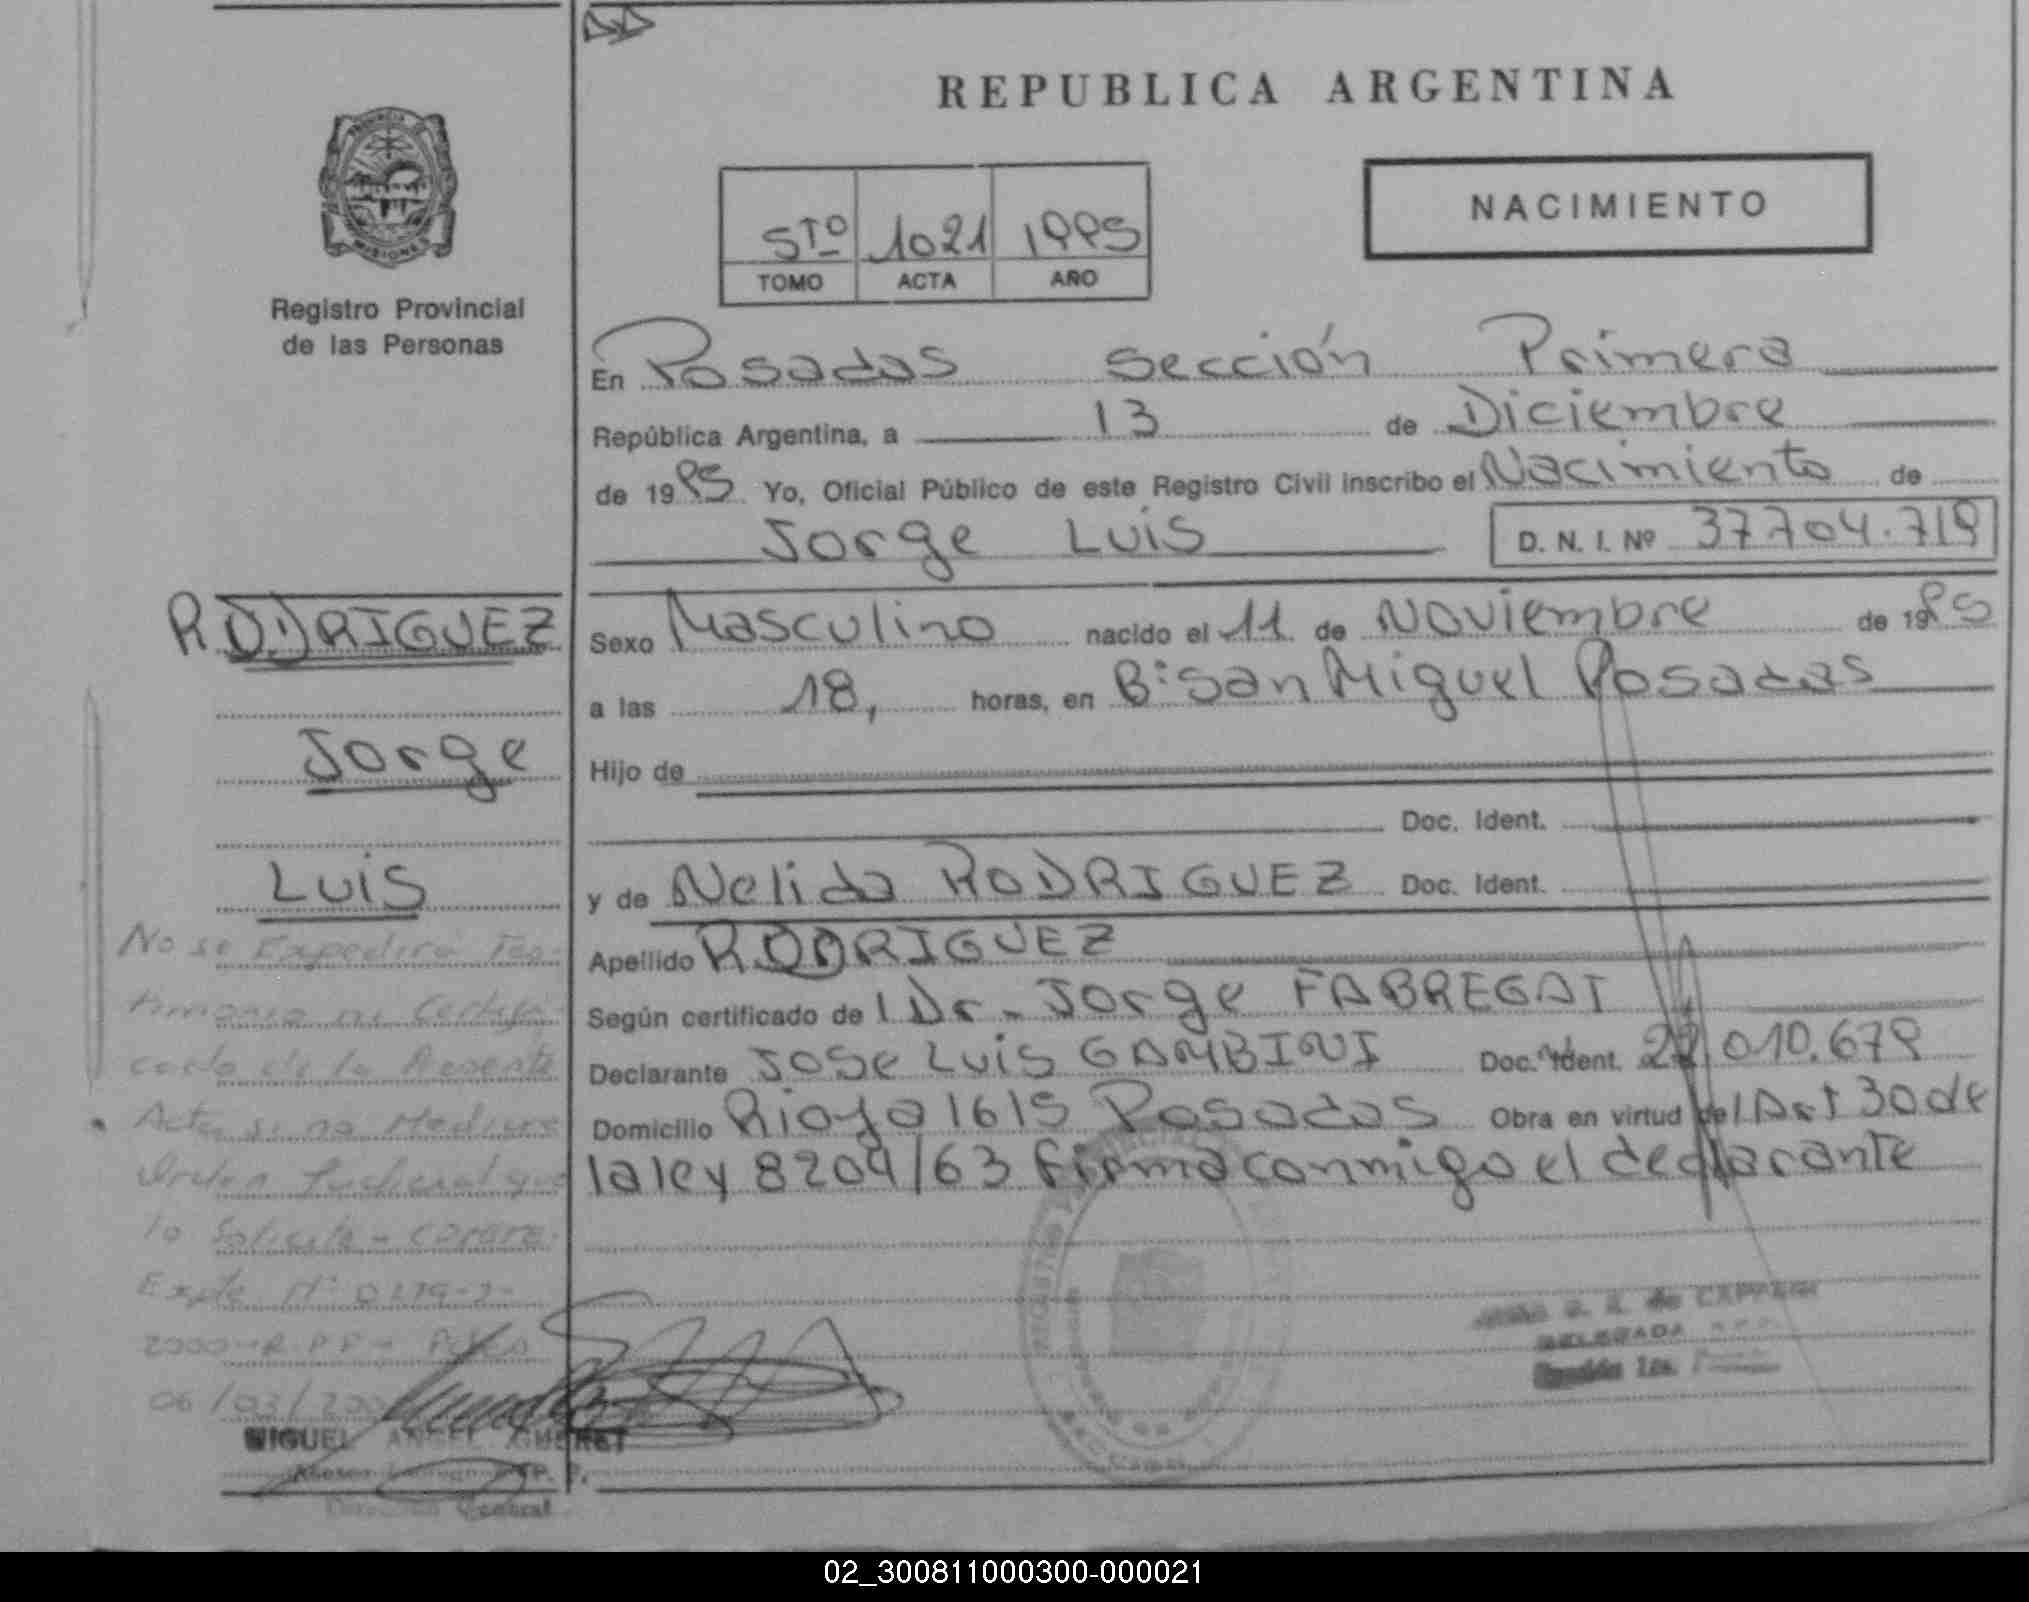 REPUBLICA ARGENTINA
NACIMIENTO
5to 1021 1995
TOMO ACTA AÑO
PROVINCIA DE
MISIONES
Registro Provincial
de las Personas
En Posadas Sección Primera
República Argentina, a 13 de Diciembre
de 1995 Yo, Oficial Público de este Registro Civil inscribo el Nacimiento de
Jorge Luis D. N. I. Nº 37704.719
RODRIGUEZ
Jorge
Luis
Sexo Masculino nacido el 11 de Noviembre de 1995
a las 18, horas, en Bº San Miguel Posadas
Hijo de
Doc. Ident.
y de Nelida RODRIGUEZ Doc. Ident.
Apellido RODRIGUEZ
Según certificado de l Dr. Jorge FABREGAT
Declarante JOSE LUIS GAMBINI Doc. Ident. 010.679
Domicilio Rioja 1615 Posadas Obra en virtud del Art 30 de
la ley 8204/63 firma conmigo el declarante
No se Expedirá Tes-
timonio ni Certifi-
cado de la Presente
Acta si no Mediare
Orden Judicial que
lo Solicite -
Expte Nº
2000-R.P.P-
06/03/
MIGUEL ANGEL
Central
de
DELEGADA
Sección 1ra.
02_300811000300-000021